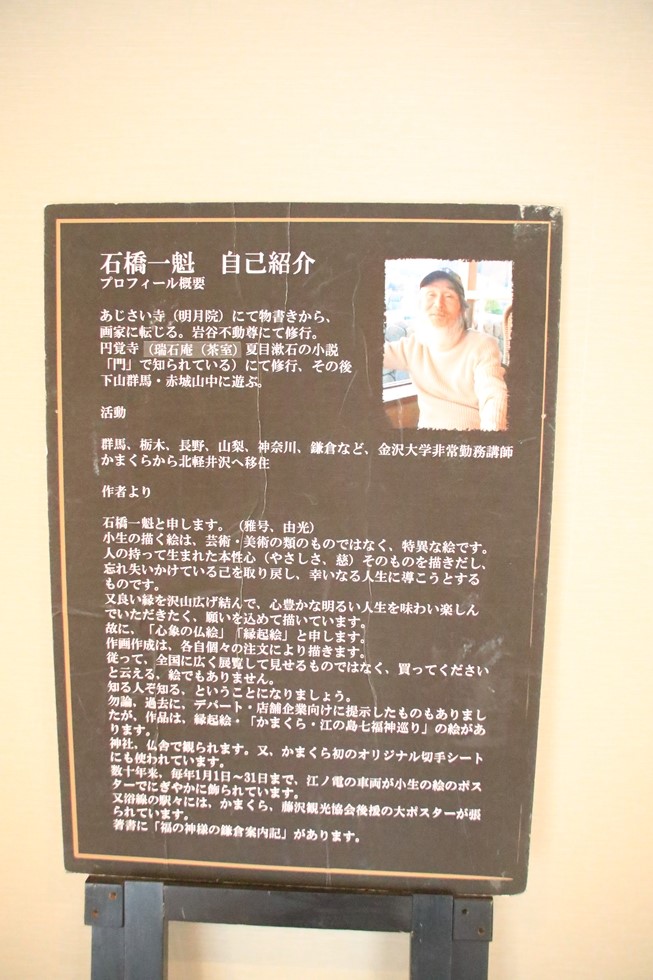 石橋一魁　自己紹介
プロフィール概要
あじさい寺（明月院）にて物書きから、
画家に転じる。岩谷不動尊にて修行。
円覚寺（瑞石庵（茶室）夏目漱石の小説
「門」で知られている）にて修行、その後
下山群馬・赤城山中に遊ぶ。
活動
群馬、栃木、長野、山梨、神奈川、鎌倉など、金沢大学非常勤務講師
かまくらから北軽井沢へ移住
作者より
石橋一魁と申します。（雅号、由光）
小生の描く絵は、芸術・美術の類のものではなく、特異な絵です。
人の持って生まれた本性心（やさしさ、慈）そのものを描きだし、
忘れ失いかけている己を取り戻し、幸いなる人生に導こうとする
ものです。
又良い縁を沢山広げ結んで、心豊かな明るい人生を味わい楽しん
でいただきたく、願いを込めて描いています。
故に、「心象の仏絵」「縁起絵」と申します。
作画作成は、各自個々の注文により描きます。
従って、全国に広く展覧して見せるものではなく、買ってください
と云える、絵でもありません。
知る人ぞ知る、ということになりましょう。
勿論、過去に、デパート・店舗企業向けに提示したものもありまし
たが、作品は、縁起絵・「かまくら・江の島七福神巡り」の絵があ
ります。
神社、仏舎で観られます。又、かまくら初のオリジナル切手シート
にも使われています。
数十年来、毎年1月1日～31日まで、江ノ電の車両が小生の絵のポス
ターでにぎやかに飾られています。
又沿線の駅々には、かまくら、藤沢観光協会後援の大ポスターが張
られています。
著書に「福の神様の鎌倉案内記」があります。